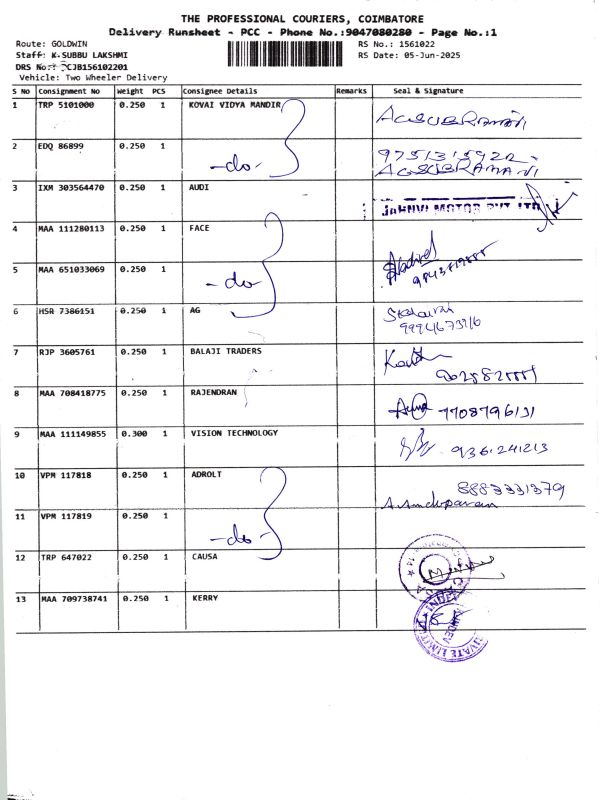 THE PROFESSIONAL COURIERS, COIMBATORE
Delivery Runsheet - PCC - Phone No.:9047080280 - Page No.:1
Route: GOLDWIN RS No.: 1561022
Staff: K.SUBBU LAKSHMI RS Date: 05-Jun-2025
DRS No.: PCJB156102201
Vehicle: Two Wheeler Delivery
S No Consignment No Weight PCS Consignee Details Remarks Seal & Signature
1 TRP 5101000 0.250 1 KOVAI VIDYA MANDIR AGSUBRAMANI
2 EDQ 86899 0.250 1 -do- 9751315922 AGSUBRAMANI
3 IXM 303564470 0.250 1 AUDI JAHNVI MOTOR PVT LTD
4 MAA 111280113 0.250 1 FACE
5 MAA 651033069 0.250 1 -do-
6 HSR 7386151 0.250 1 AG
7 RJP 3605761 0.250 1 BALAJI TRADERS
8 MAA 708418775 0.250 1 RAJENDRAN 7708796131
9 MAA 111149855 0.300 1 VISION TECHNOLOGY 9361241213
10 VPM 117818 0.250 1 ADROLT 8883331379
11 VPM 117819 0.250 1 -do-
12 TRP 647022 0.250 1 CAUSA
13 MAA 709738741 0.250 1 KERRY